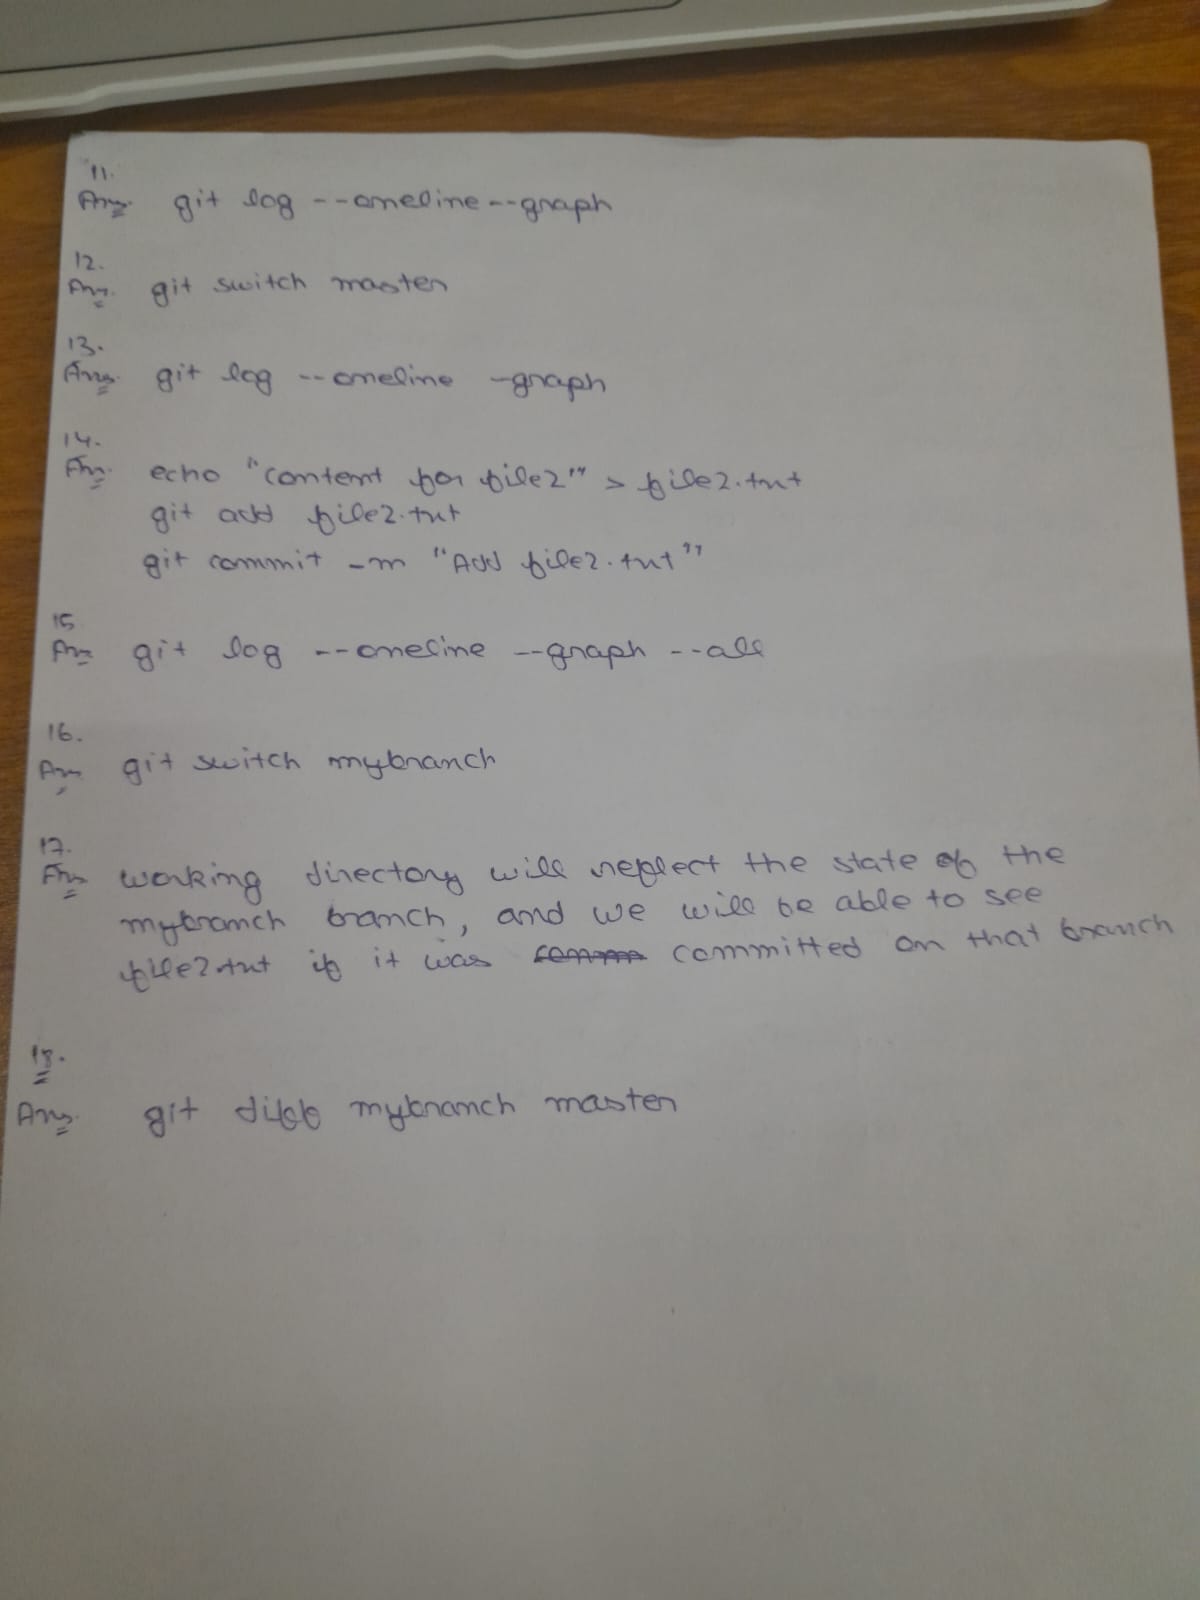 11.
Ans. git log --oneline--graph
12.
Ans. git switch master
13.
Ans. git log --oneline -graph
14.
Ans. echo "content for file2" > file2.txt
git add file2.txt
git commit -m "Add file2.txt"
15
Ans git log --oneline --graph --all
16.
Ans git switch mybranch
17.
Ans working directory will reflect the state of the
mybranch branch, and we will be able to see
file2.txt if it was committed on that branch
18.
Ans. git diff mybranch master